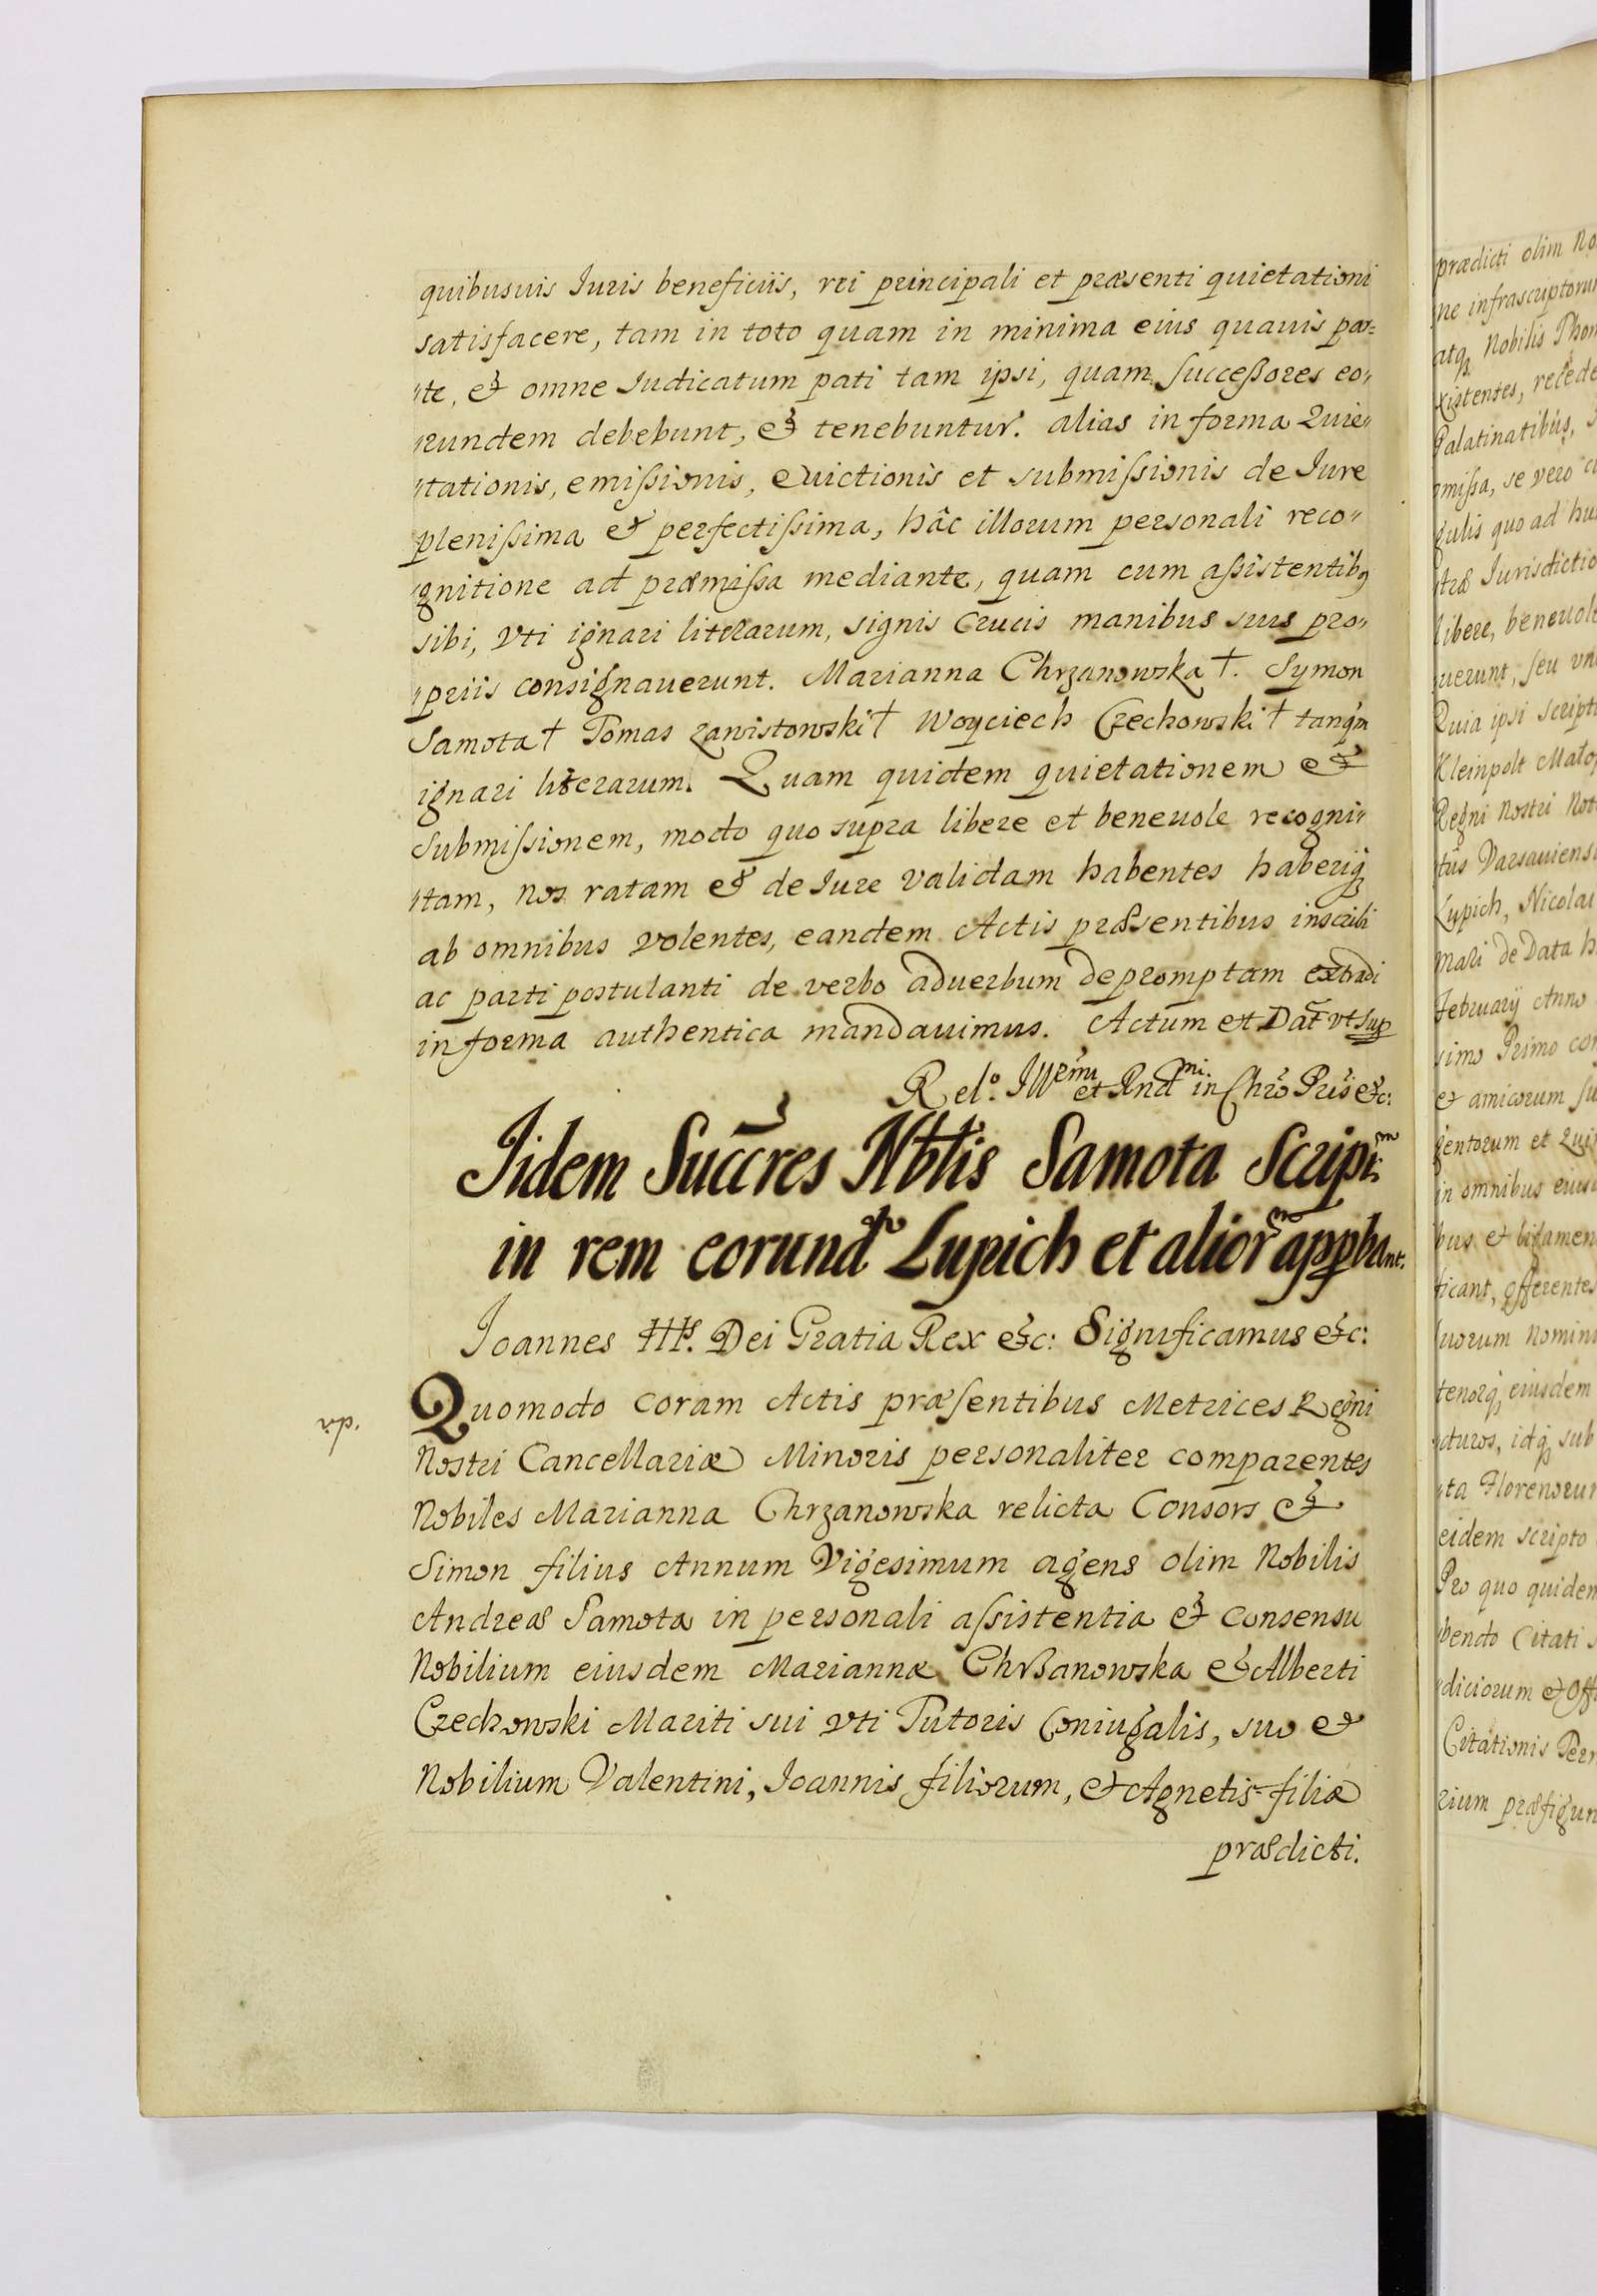 quibusuis Iuris beneficiis, rei principali et præsenti quietationi
satisfacere, tam in toto quam in minima eius quauis par=
"te, & omne Iudicatum pati tam ipsi, quam Successores eo"
"rundem debebunt, & tenebuntur. alias in forma Quie"
"tationis, emissionis, Euictionis et submissionis de Iure
plenissima & perfectissima, hâc illorum personali reco"
"gnitione ad præmissa mediante, quam cum assistentibꝫ
sibi, Vti ignari literarum, signis Crucis manibus suis pro"
"priis consignauerunt. Marianna Chrzanowska †. Symon
Samota † Tomas Zawistowski † Woyciech Czechowski † tanq̃m
ignari literarum. Quam quidem quietationem &
Submissionem, modo quo supra libere et beneuole recogni"
"tam, Nos ratam & de Iure Validam habentes haberiqꝫ
ab omnibus volentes, eandem Actis præsentibus inscribi
ac parti postulanti de verbo aduerbum depromptam extradi
in forma authentica mandauimus. Actum et Dat̃ vt sup
Relo. Illr̃mi et Rndmi in Chr̃o Pr̃is &c:
Iidem Succr̃es Nbtis Samota Script:m
in rem eorund Lupich et alior appbant.
Ioannes IIIs. Dei Gratia Rex &c: Significamus &c:
Quomodo coram Actis præsentibus Metrices Regni
Nostri Cancellariæ Minoris personaliter comparentes
Nobiles Marianna Chrzanowska relicta Consors &
Simon filius Annum Vigesimum agens olim Nobilis
Andreæ Samota in personali assistentia & consensu
Nobilium eiusdem Mariannæ Chrzanowska & Alberti
Czechowski Mariti sui Vti Tutoris Coniugalis, suo &
Nobilium Valentini, Ioannis filiorum, & Agnetis filiæ
prædicti.
prædicti olim No
ne infrascriptorum
atqꝫ Nobilis Thom
xistentes, recede
Palatinatibus,
missa, se vero
gulis quo ad hu
træ Iurisdictio
libere, beneuole
uerunt, seu
Quia ipsi Script
Kleinpolt Mało
Regni Nostri Not
tûs Varsauiensi
Lupich, Nicolai
mari de Data
Februarij Anno
simo Primo con
& amicorum su
gentorum et Qui
in omnibus
bus & ligamen
ticant, offerentes
uorum Nomini
tenorqꝫ eiusdem
cturos, idqꝫ sub
ta Florenorum
eidem scripto
Pro quo quidem
bendo Citati
diciorum & Offi
Citationis Per
rium præfigun